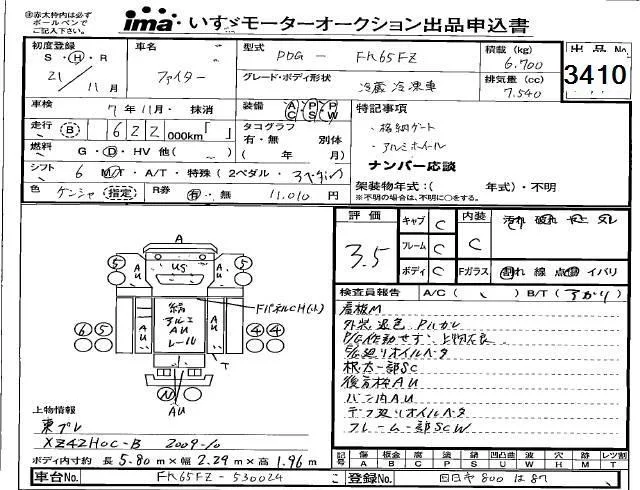 ※赤太枠内は必ず
ボールペンで
ご記入下さい。
ima いすゞモーターオークション出品申込書
初度登録
S・H・R
21 / 11月
車名
ファイター
型式 PDG - FK65FZ
グレード・ボディ形状
冷蔵冷凍車
積載 (kg)
6,700
排気量 (cc)
7,540
出品No
3410
車検 7年11月・抹消
走行 (B) 622 000km「 」
燃料 G・D・HV 他( )
シフト 6 M/T・A/T・特殊(2ペダル・3ペダル)
色 ケンジャ 指定
R券 有・無 11,010円
装備 AC PS PW
タコグラフ
有・無 別体
( 年 月)
特記事項
・格納ゲート
・アルミホイール
ナンバー応談
架装物年式:( 年式)・不明
※不明の場合は、不明に○をする。
評価
3.5
キャブ C
フレーム C
ボディ C
内装 C
汚れ 破れ
Fガラス 割れ 線 点 イバリ
検査員報告 A/C ( ) B/T (アガリ)
看板M
外装退色 Pルカレ
P/G作動せず、上物不良
E/G廻りオイルベタ
根太一部SC
後舌枠AU
バン内AU
デフ廻りオイルベタ
フレーム一部SCW
A
5
5
AU
US
AU
鎬
アルミ
AU
レール
AU
AU
FパネルCH(小)
6 5
4 4
T
N
AU
上物情報
東プレ
XZ42HOC-B 2009-10
ボディ内寸約 長 5.80 m × 幅 2.29 m × 高 1.96 m
記号
傷 A
板金 B
腐食 C
塗 P
錆 S
凹凸曲 U
凹 W
穴 H
跡 M
ネジ T
レツ割
車台No. FK65FZ-530024
登録No. 四日市 800 は 87